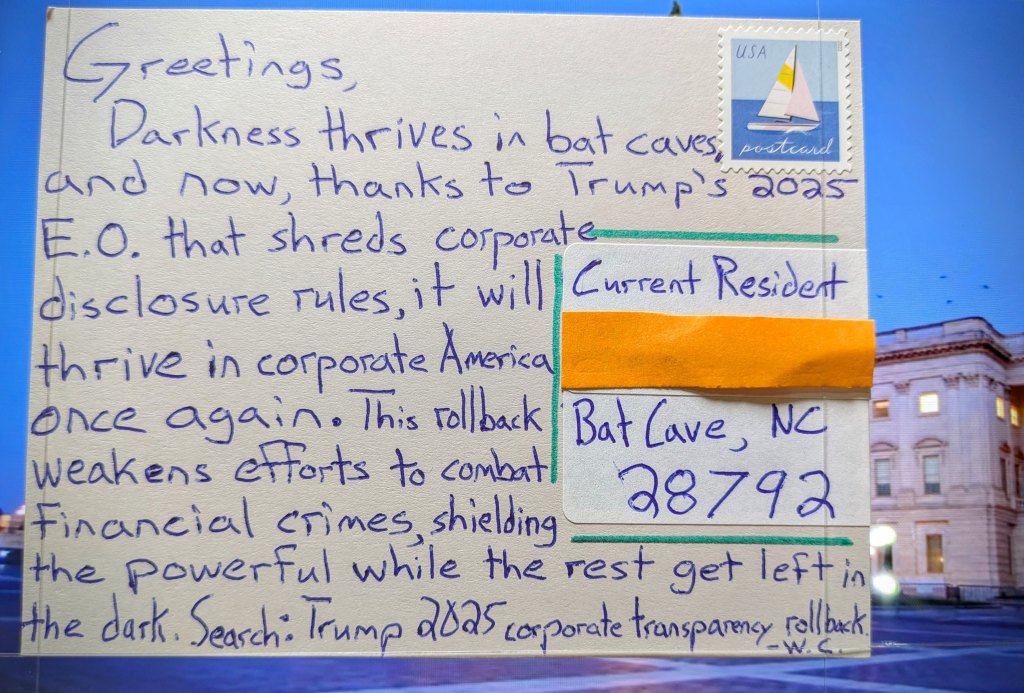 Greetings,
USA
postcard
Darkness thrives in bat caves,
and now, thanks to Trump's 2025
E.O. that shreds corporate
disclosure rules, it will
thrive in corporate America
once again. This rollback
weakens efforts to combat
financial crimes, shielding
the powerful while the rest get left in
the dark. Search: Trump 2025 corporate transparency rollback.
-W.C.
Current Resident
Bat Cave, NC
28792